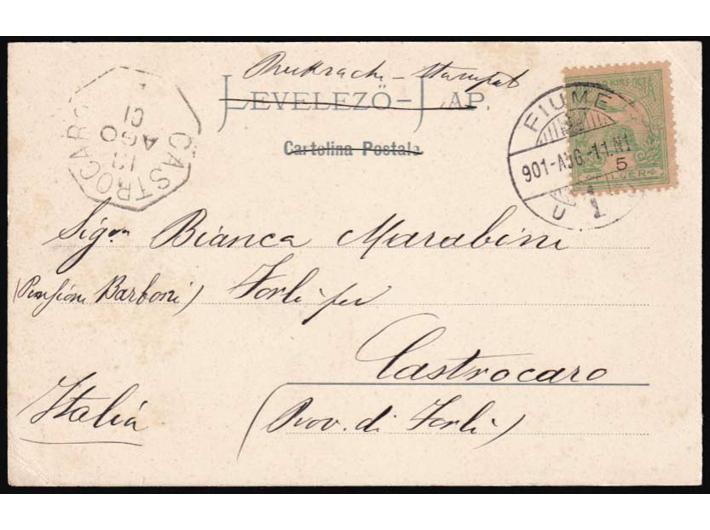 Drucksache – Stampat
LEVELEZŐ-LAP.
Cartolina Postale
CASTROCARO
AGO
01
FIUME
901-AUG-11.N1
5
FILLÉR
Sig.na Bianca Marabini
(Pensione Barboni) Forlì per
Castrocaro
Italia (Prov. di Forlì)